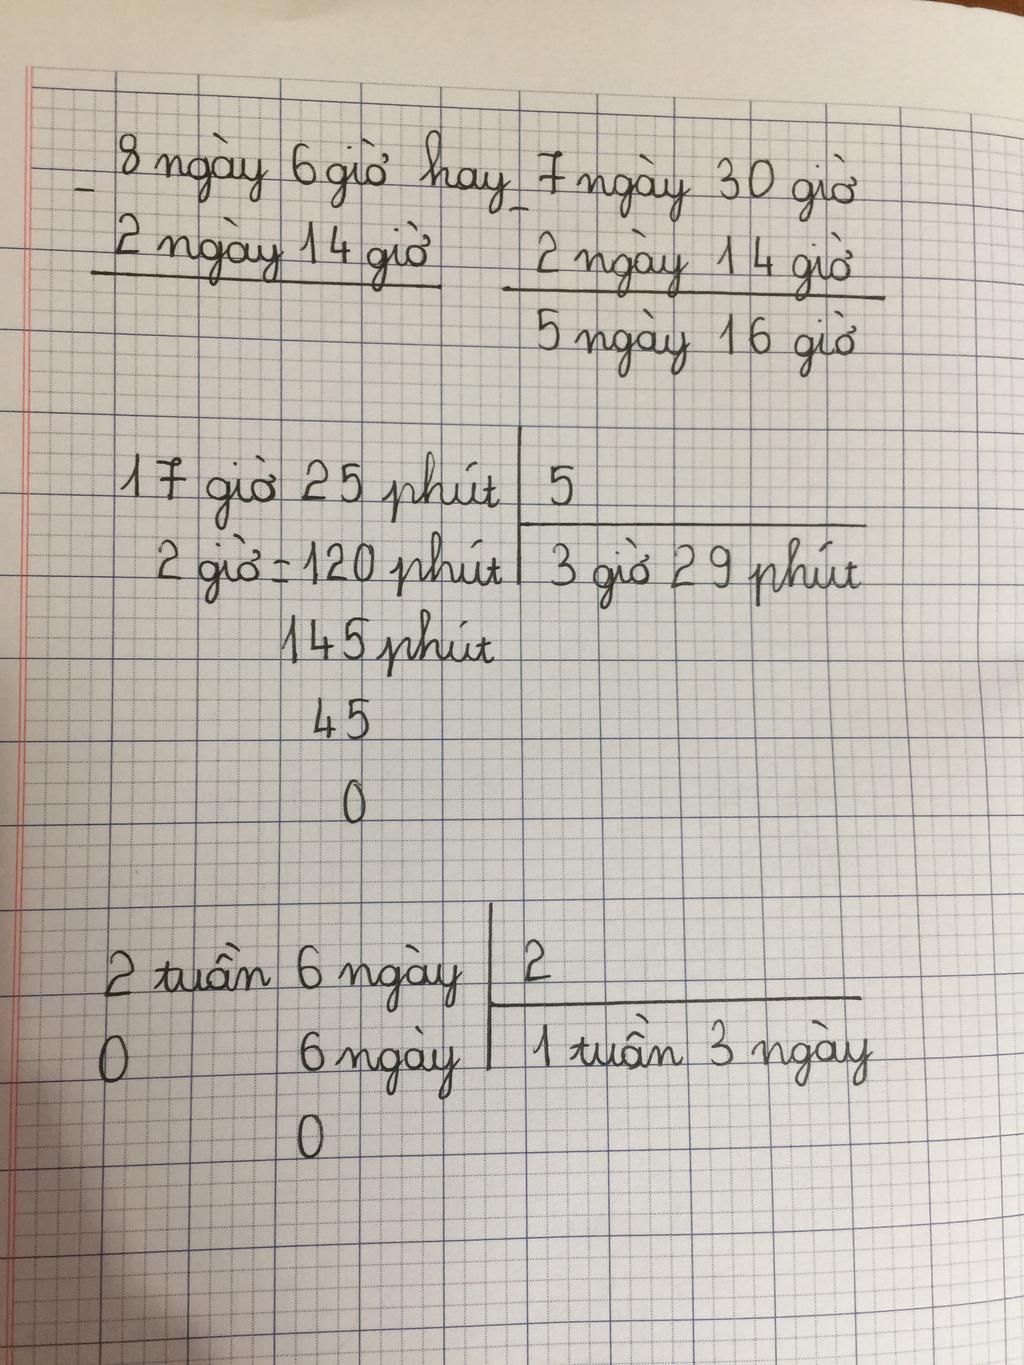 8 ngày 6 giờ hay 7 ngày 30 giờ
- 2 ngày 14 giờ - 2 ngày 14 giờ
5 ngày 16 giờ
17 giờ 25 phút 5
2 giờ = 120 phút 3 giờ 29 phút
145 phút
45
0
2 tuần 6 ngày 2
0 6 ngày 1 tuần 3 ngày
0